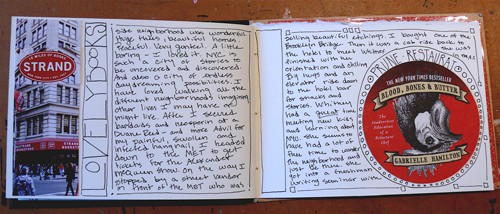 18 MILES OF BOOKS
STRAND
LOVELY BOOKS
side neighborhood was wonderful
huge trees, beautiful homes
Peaceful. Very genteel. A little
boring - I loved it. NYC is
such a city of stories to
be uncovered and discovered.
And also a city of endless
daydreaming possibilities. I
have loved walking all the
different neighborhoods imagining
other lives I may have or
might live. After I secured
bandaids and neosporin at a
Duane Reade - and more Advil for
my painful, swollen and
infected hangnail, I headed
down to the MET to get
tickets for the Alexander
McQueen show. On the way I
stopped by a street vendor
in front of the MET who was
selling beautiful etchings. I bought one of the
Brooklyn Bridge. Then it was a cab ride back to
the hotel to meet Whitney
finished with her she was
orientation and
Big hugs and an
elevator ride down
to the hotel bar
for snacks and
stories. Whitney
had a great time
meeting new kids
and learning about
NYU. She seems to
have had a lot of
free time to wander
the neighborhood and
just be there. She
got into a freshman
writing seminar with
PRUNE RESTAURANT
THE NEW YORK TIMES BESTSELLER
BLOOD, BONES & BUTTER
The
Inadvertent
Education
of a
Reluctant
Chef
GABRIELLE HAMILTON